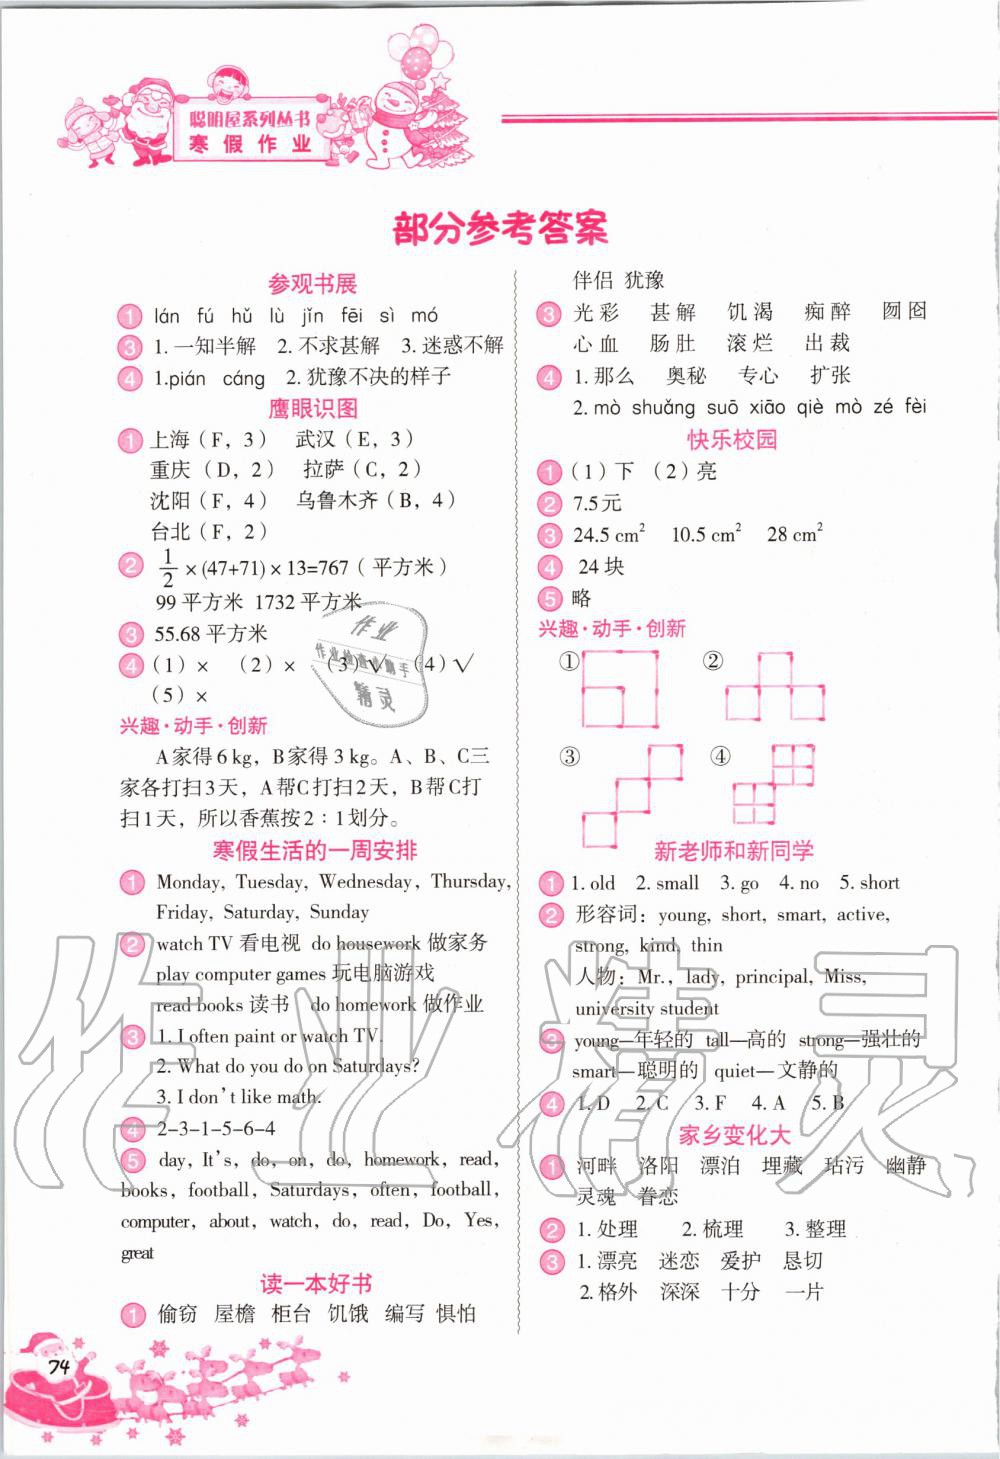 聪明屋系列丛书
寒假作业
部分参考答案
参观书展
① lán fú hǔ lù jǐn fēi sì mó
③ 1.一知半解 2.不求甚解 3.迷惑不解
④ 1.pián cáng 2.犹豫不决的样子
鹰眼识图
① 上海(F，3) 武汉(E，3)
重庆(D，2) 拉萨(C，2)
沈阳(F，4) 乌鲁木齐(B，4)
台北(F，2)
② 1/2×(47+71)×13=767(平方米)
99平方米 1732平方米
③ 55.68平方米
④ (1)× (2)× (3)√ (4)√
(5)×
兴趣·动手·创新
A家得6 kg，B家得3 kg。A、B、C三
家各打扫3天，A帮C打扫2天，B帮C打
扫1天，所以香蕉按2∶1划分。
寒假生活的一周安排
① Monday, Tuesday, Wednesday, Thursday,
Friday, Saturday, Sunday
② watch TV 看电视 do housework 做家务
play computer games 玩电脑游戏
read books 读书 do homework 做作业
③ 1. I often paint or watch TV.
2. What do you do on Saturdays?
3. I don't like math.
④ 2-3-1-5-6-4
⑤ day, It's, do, on, do, homework, read,
books, football, Saturdays, often, football,
computer, about, watch, do, read, Do, Yes,
great
读一本好书
① 偷窃 屋檐 柜台 饥饿 编写 惧怕
伴侣 犹豫
③ 光彩 甚解 饥渴 痴醉 囫囵
心血 肠肚 滚烂 出裁
④ 1.那么 奥秘 专心 扩张
2. mò shuǎng suō xiāo qiè mò zé fèi
快乐校园
① (1)下 (2)亮
② 7.5元
③ 24.5 cm² 10.5 cm² 28 cm²
④ 24块
⑤ 略
兴趣·动手·创新
① ②
③ ④
新老师和新同学
① 1. old 2. small 3. go 4. no 5. short
② 形容词：young, short, smart, active,
strong, kind, thin
人物：Mr., lady, principal, Miss,
university student
③ young—年轻的 tall—高的 strong—强壮的
smart—聪明的 quiet—文静的
④ 1. D 2. C 3. F 4. A 5. B
家乡变化大
① 河畔 洛阳 漂泊 埋藏 玷污 幽静
灵魂 眷恋
② 1.处理 2.梳理 3.整理
③ 1.漂亮 迷恋 爱护 恳切
2.格外 深深 十分 一片
74
作业
作业检查小助手
精灵
作业精灵